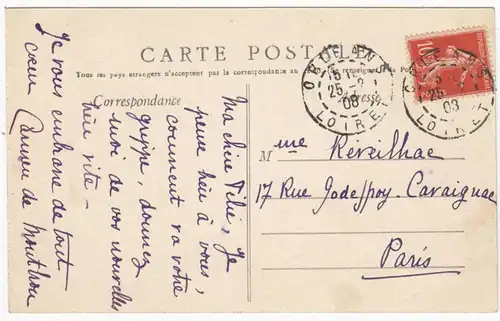 CARTE POSTALE
Tous les pays étrangers n'acceptent pas la correspondance au
Correspondance
Adresse
ORLEANS
25 - 2
08
LOIRET
ORLEANS
25 - 2
08
LOIRET
10
Ma chère Félie, Je
pense bien à vous,
comment va votre
grippe, donnez
moi de vos nouvelles
bien vite -
Je vous embrasse de tout
cœur
Carmen de
Mme Réveilhac
17 Rue Godefroy-Cavaignac
Paris